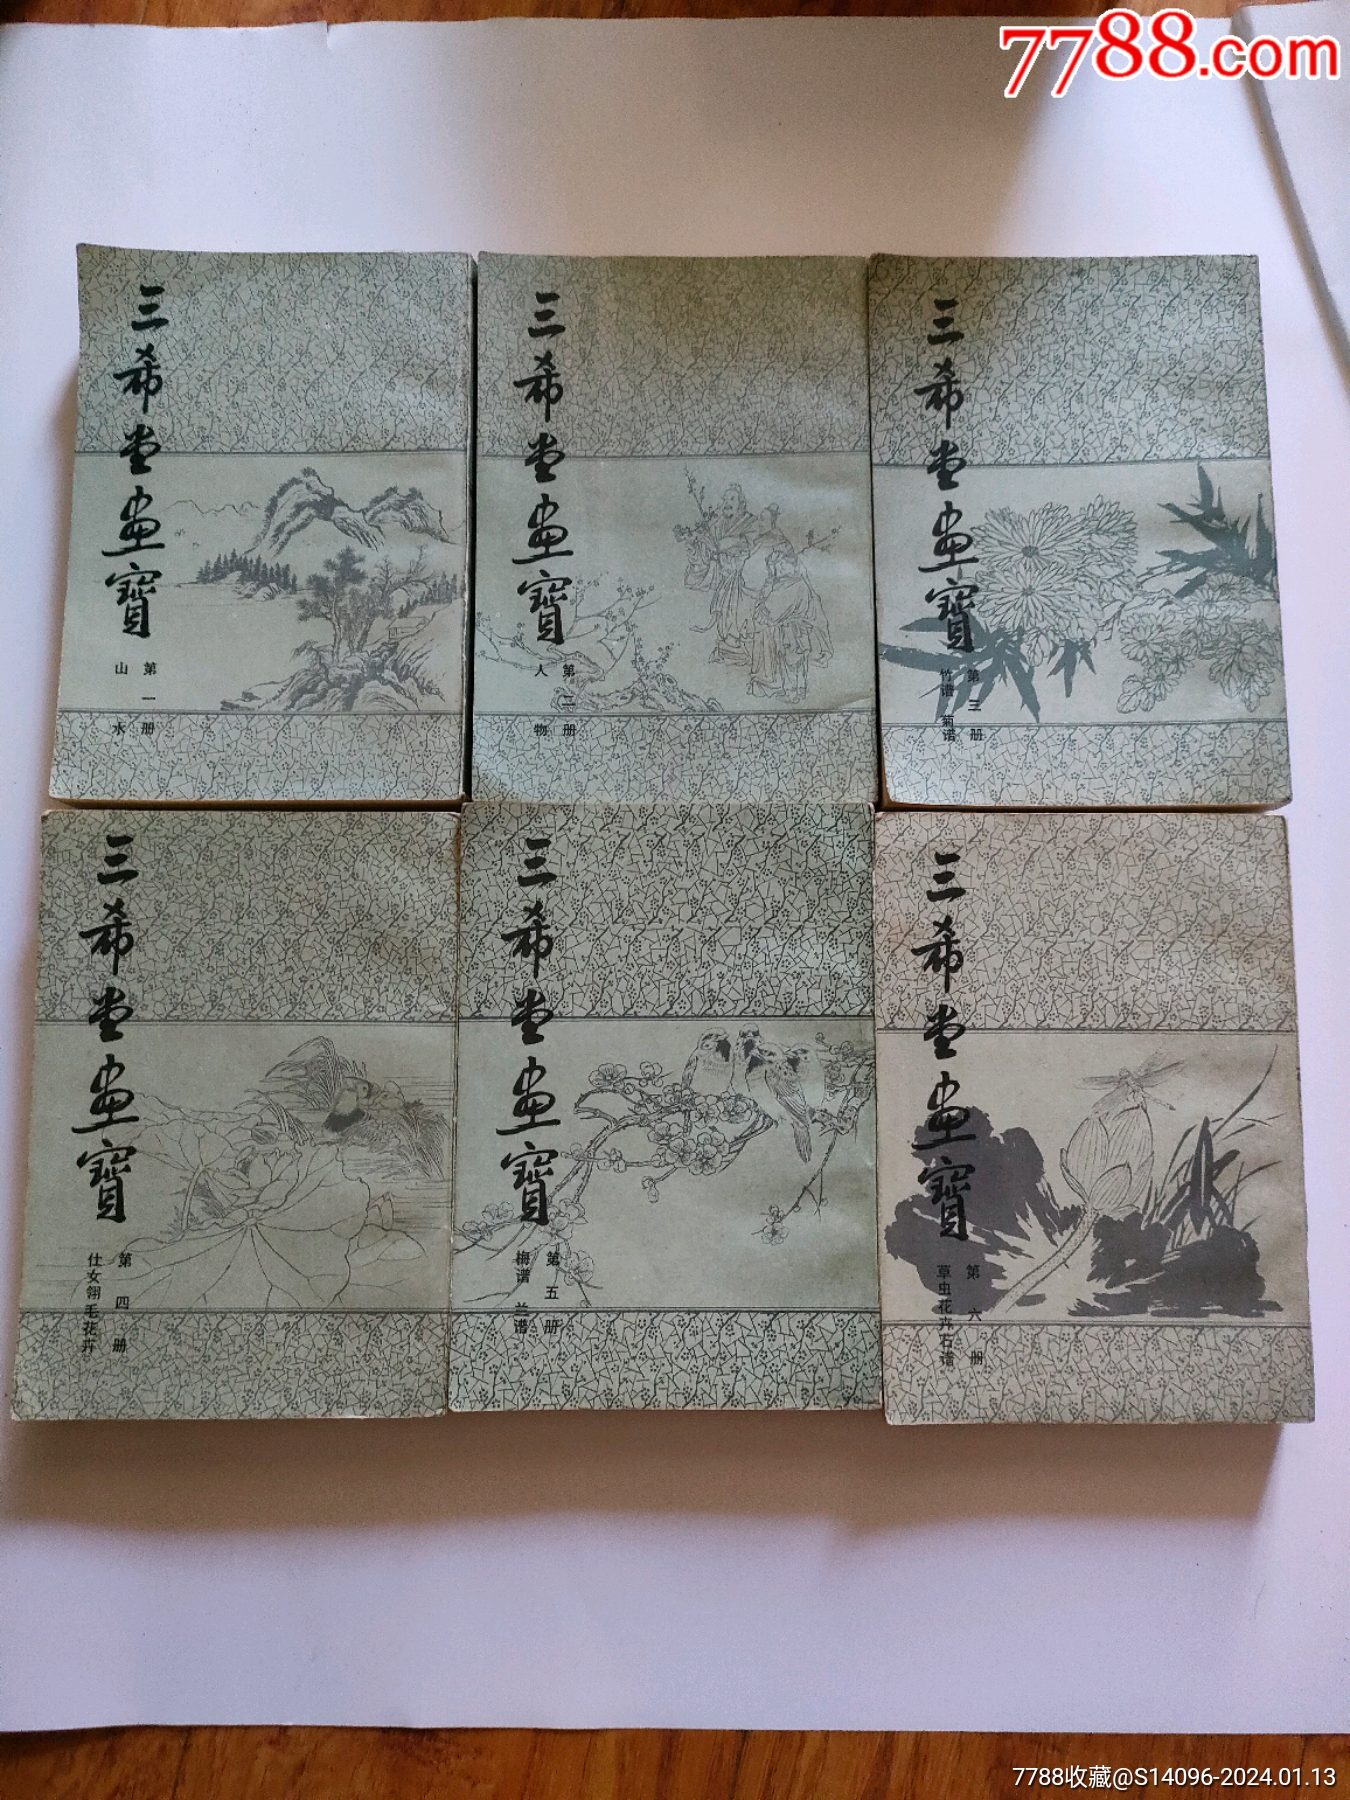 7788.com
三希堂画寶
第一册
山水
三希堂画寶
第二册
人物
三希堂画寶
第三册
竹谱 菊谱
三希堂画寶
第四册
仕女翎毛花卉
三希堂画寶
第五册
梅谱 兰谱
三希堂画寶
第六册
草虫花卉石谱
7788收藏@S14096-2024.01.13